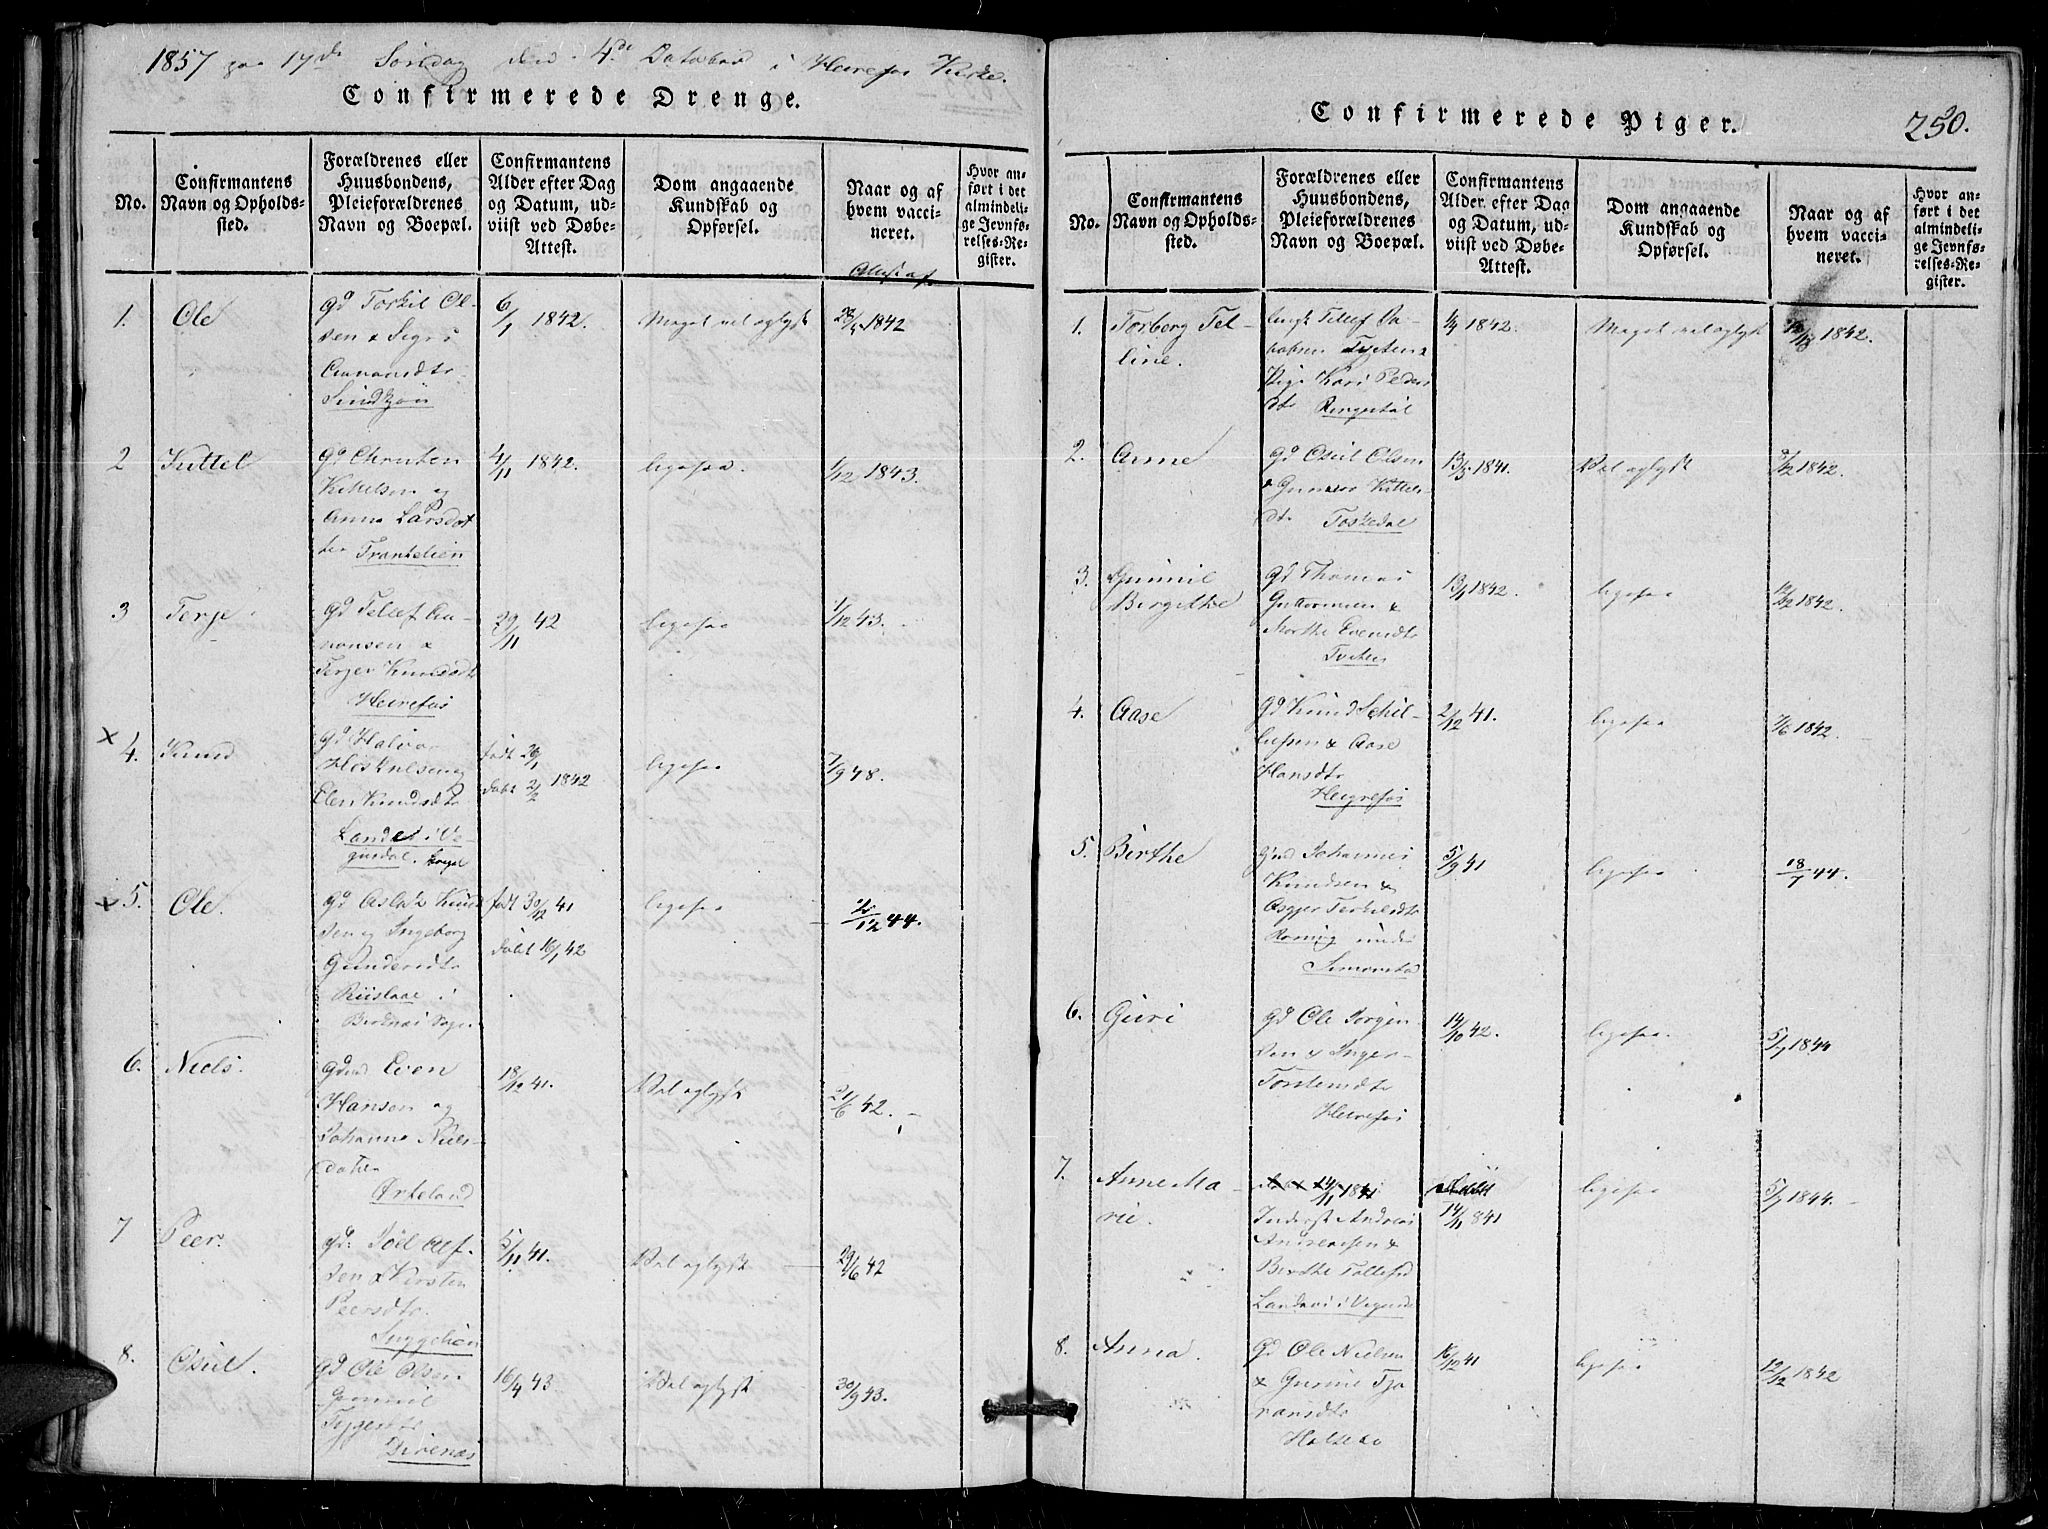 1857 paa 17de Søndag den 4de October i Heirefos Kirke.
Confirmerede Drenge.
No.
Confirmantens
Navn og Opholds-
sted.
Forældrenes eller
Huusbondens,
Pleieforældrenes
Navn og Boepæl.
Confirmantens
Alder efter Dag
og Datum, ud-
viist ved Døbe-
Attest.
Dom angaaende
Kundskab og
Opførsel.
Naar og af
hvem vacci-
neret.
Hvor an-
ført i det
almindeli-
ge Jevnfø-
relses-Re-
gister.
1.
Ole
Gd Torkil Ol-
sen & Sigri
Aanondsdtr
6/1 1842.
Meget vel oplyst
1842
2
Kittel
Gd Christen
Kittelsen og
Anna Larsdat-
ter
4/11 1842.
ligesaa.
1/12 1843.
3
Terje
Gd Tellef Aa-
nonsen &
Terjer Knudsdtr
Heirefos
29/11 42
ligesaa
1/12 43.
x 4.
Knud
Gd Halvor
og
Elen Knudsdtr
i Ve-
gusdal. Sogn
født 26/1
døbt 2/2 1842
ligesaa
7/9 48.
x 5.
Ole.
Gd Aslak Knud-
sen og Ingeborg
Gundersdtr
i
Birkenæs Sogn
født 30/12 41
døbt 16/1 42
ligesaa
12 44.
6.
Niels.
Gd Even
Hansen og
Johanne Niels-
datter
Ørteland
18/12 41.
Vel oplyst
21/6 42.
7
Peer.
Gd. Joel Olf-
sen & Kirsten
Peersdtr.
5/11 41.
Vel oplyst
29/6 42
8.
Osul.
Gd Ole Olsen
Gunnil
Tygesdtr
16/4 43
Vel oplyst
30/9 43.
Confirmerede Piger.
250.
No.
Confirmantens
Navn og Opholds-
sted.
Forældrenes eller
Huusbondens,
Pleieforældrenes
Navn og Boepæl.
Confirmantens
Alder efter Dag
og Datum, ud-
viist ved Døbe-
Attest.
Dom angaaende
Kundskab og
Opførsel.
Naar og af
hvem vacci-
neret.
Hvor an-
ført i det
almindeli-
ge Jevnfø-
relses-Re-
gister.
1.
Torborg Tel-
line.
Tellef Ja-
cobsen Tveten &
Pige Kari Peders
dtr
1842.
Meget vel oplyst
1842.
2.
Anne
Gd Osul Olsen
& Gunvor Kittels-
dtr Toskedal
13/5 1841.
Vel oplyst
1842.
3.
Gunnil
Birgithe
Gd Thomas
Guttormsen &
Marthe Evensdtr
Tveten
13/1 1842.
ligesaa
12/12 1842.
4.
Aase
Gd Knud
& Aase
Hansdtr
Heirefos
2/12 41.
ligesaa
1842.
5.
Birthe
Johannes
Knudsen &
Asgjer Terkilsdtr
under
Simonstad
5/9 41
ligesaa
18/7 44.
6.
Guri
Gd Ole Jørgen-
sen & Inger
Torstensdtr
Heirefos
14/10 42.
ligesaa.
5/7 1844
7.
Anne Ma-
rie.
14/11 1841
Inderst Andreas
Andreasen &
Birthe Tollefsd
i Vegusd
14/11 841
ligesaa
5/7 1844.
8.
Anna.
Gd Ole Nielsen
& Gurine Tjø
ransdtr
16/12 41
ligesaa
12/12 1842